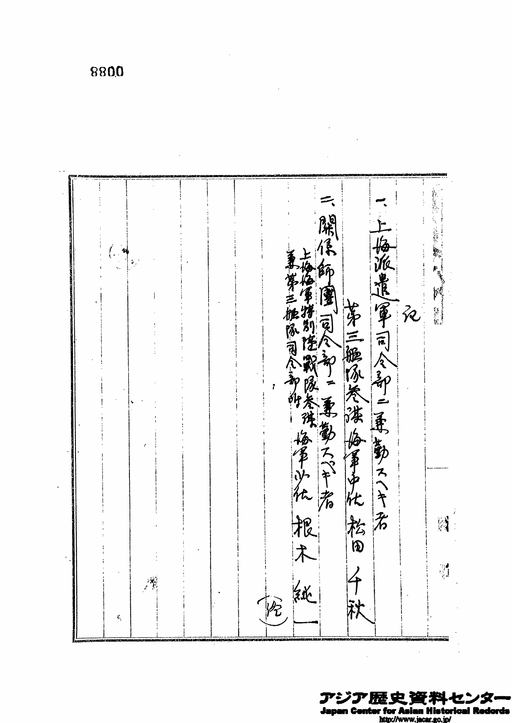 0088
記
一、上海派遣軍司令部ニ兼勤スヘキ者
第三艦隊参謀海軍中佐 松田千秋
二、關係師團司令部ニ兼勤スヘキ者
上海海軍特別陸戰隊参謀
兼第三艦隊司令部附
海軍少佐 根木純一
(終)
アジア歴史資料センター
Japan Center for Asian Historical Records
http://www.jacar.go.jp/